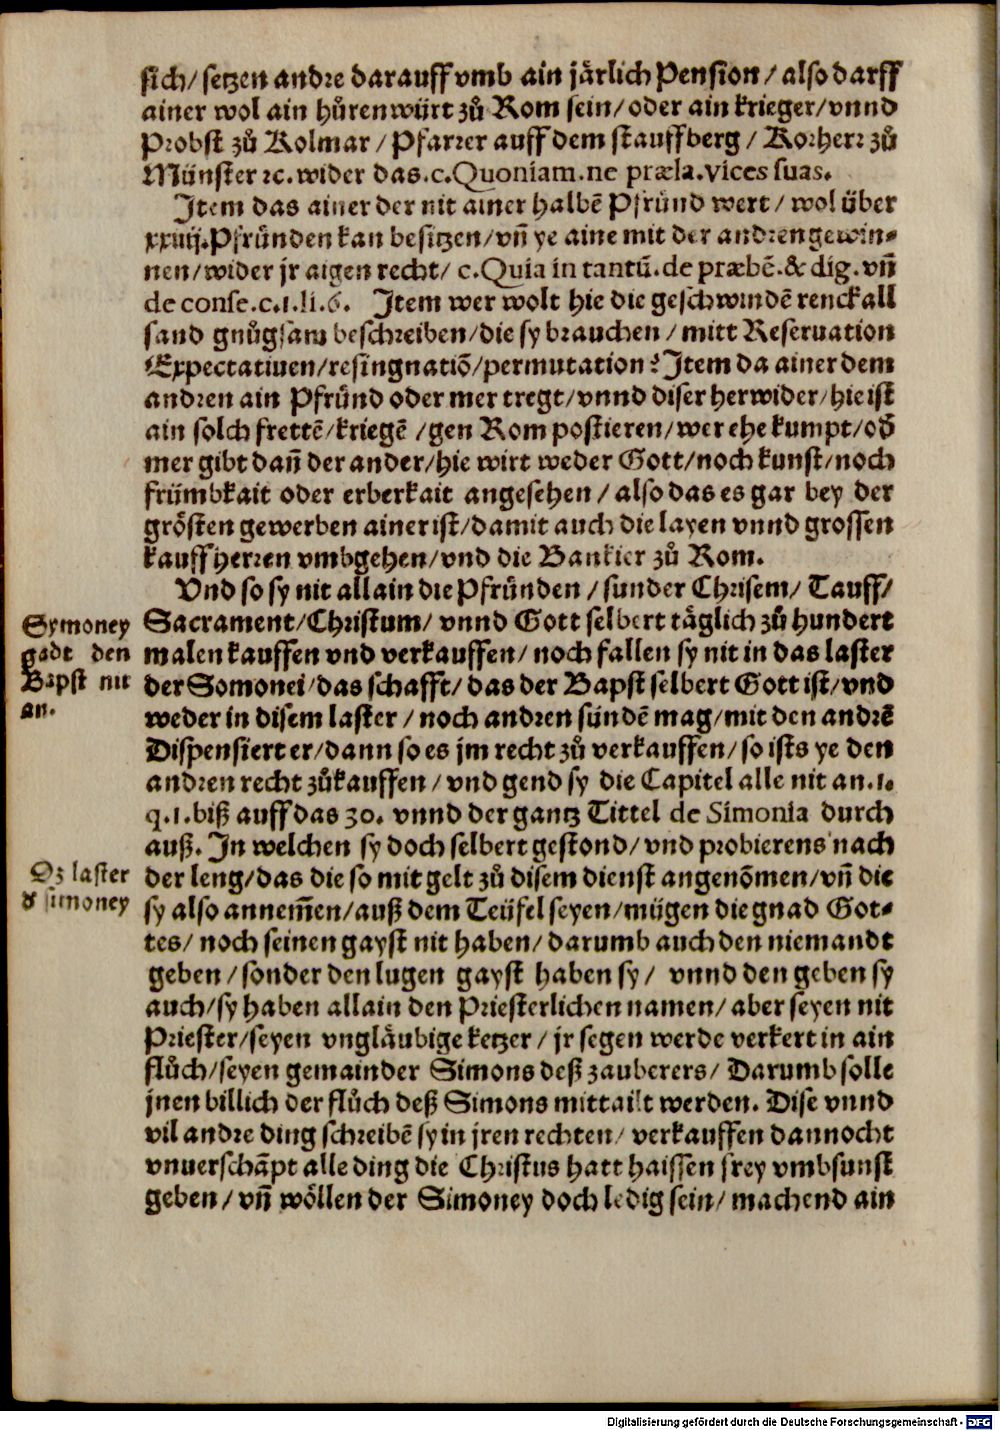 sich/ setzen andre darauff vmb ain jaͤrlich Pension/ also darff
ainer wol ain huͤrenwürt zuͦ Rom sein/ oder ain krieger/ vnnd
Probst zuͦ Kolmar/ Pfarrer auff dem stauffberg/ Korherr zuͦ
Münster ꝛc. wider das .c. Quoniam. ne præla. vices suas.
Item das ainer der nit ainer halbē Pfruͤnd wert/ wol über
xxiiij. Pfruͤnden kan besitzen/ vñ ye aine mit der andren gewin⸗
nen/ wider jr aigen recht/ c. Quia in tantū. de præbē. & dig. vñ
de conse. c. 1. li. 6. Item wer wolt hie die geschwindē renck all
sand gnuͦgsam beschreiben/ die sy brauchen/ mitt Reseruation
Expectatiuen/ resingnatiō/ permutation? Item da ainer dem
andren ain Pfruͤnd oder mer tregt/ vnnd diser herwider/ hie ist
ain solch frettē/ kriegē/ gen Rom postieren/ wer ehe kumpt/ oð
mer gibt dañ der ander/ hie wirt weder Gott/ noch kunst/ noch
frümbkait oder erberkait angesehen/ also das es gar bey der
groͤsten gewerben ainer ist/ damit auch die layen vnnd grossen
kauffherren vmbgehen/ vnd die Bankier zuͦ Rom.
Vnd so sy nit allain die Pfruͤnden/ sunder Chrisem/ Tauff/
Sacrament/ Christum/ vnnd Gott selbert taͤglich zuͦ hundert
malen kauffen vnd verkauffen/ noch fallen sy nit in das laster
der Somonei/ das schafft/ das der Bapst selbert Gott ist/ vnd
weder in disem laster/ noch andren sündē mag/ mit den andrē
Dispensiert er/ dann so es jm recht zuͦ verkauffen/ so ists ye den
andren recht zuͦkauffen/ vnd gend sy die Capitel alle nit an. 1.
q. 1. biß auff das 30. vnnd der gantz Tittel de Simonia durch
auß. In welchen sy doch selbert gestond/ vnd probierens nach
der leng/ das die so mit gelt zuͦ disem dienst angenōmen/ vñ die
sy also annem̄en/ auß dem Teüfel seyen/ mügen die gnad Got⸗
tes/ noch seinen gayst nit haben/ darumb auch den niemandt
geben/ sonder den lugen gayst haben sy/ vnnd den geben sy
auch/ sy haben allain den Priesterlichen namen/ aber seyen nit
Priester/ seyen vnglaͤubige ketzer/ jr segen werde verkert in ain
fluͦch/ seyen gemainder Simons deß zauberers/ Darumb solle
jnen billich der fluͦch deß Simons mittailt werden. Dise vnnd
vil andre ding schreibē sy in jren rechten/ verkauffen dannocht
vnuerschāpt alle ding die Christus hatt haissen frey vmbsunst
geben/ vñ woͤllen der Simoney doch ledig sein/ machend ain
Symoney
gadt den
Bapst nit
an.
Dz laster
ð simoney
Digitalisierung gefördert durch die Deutsche Forschungsgemeinschaft - DFG